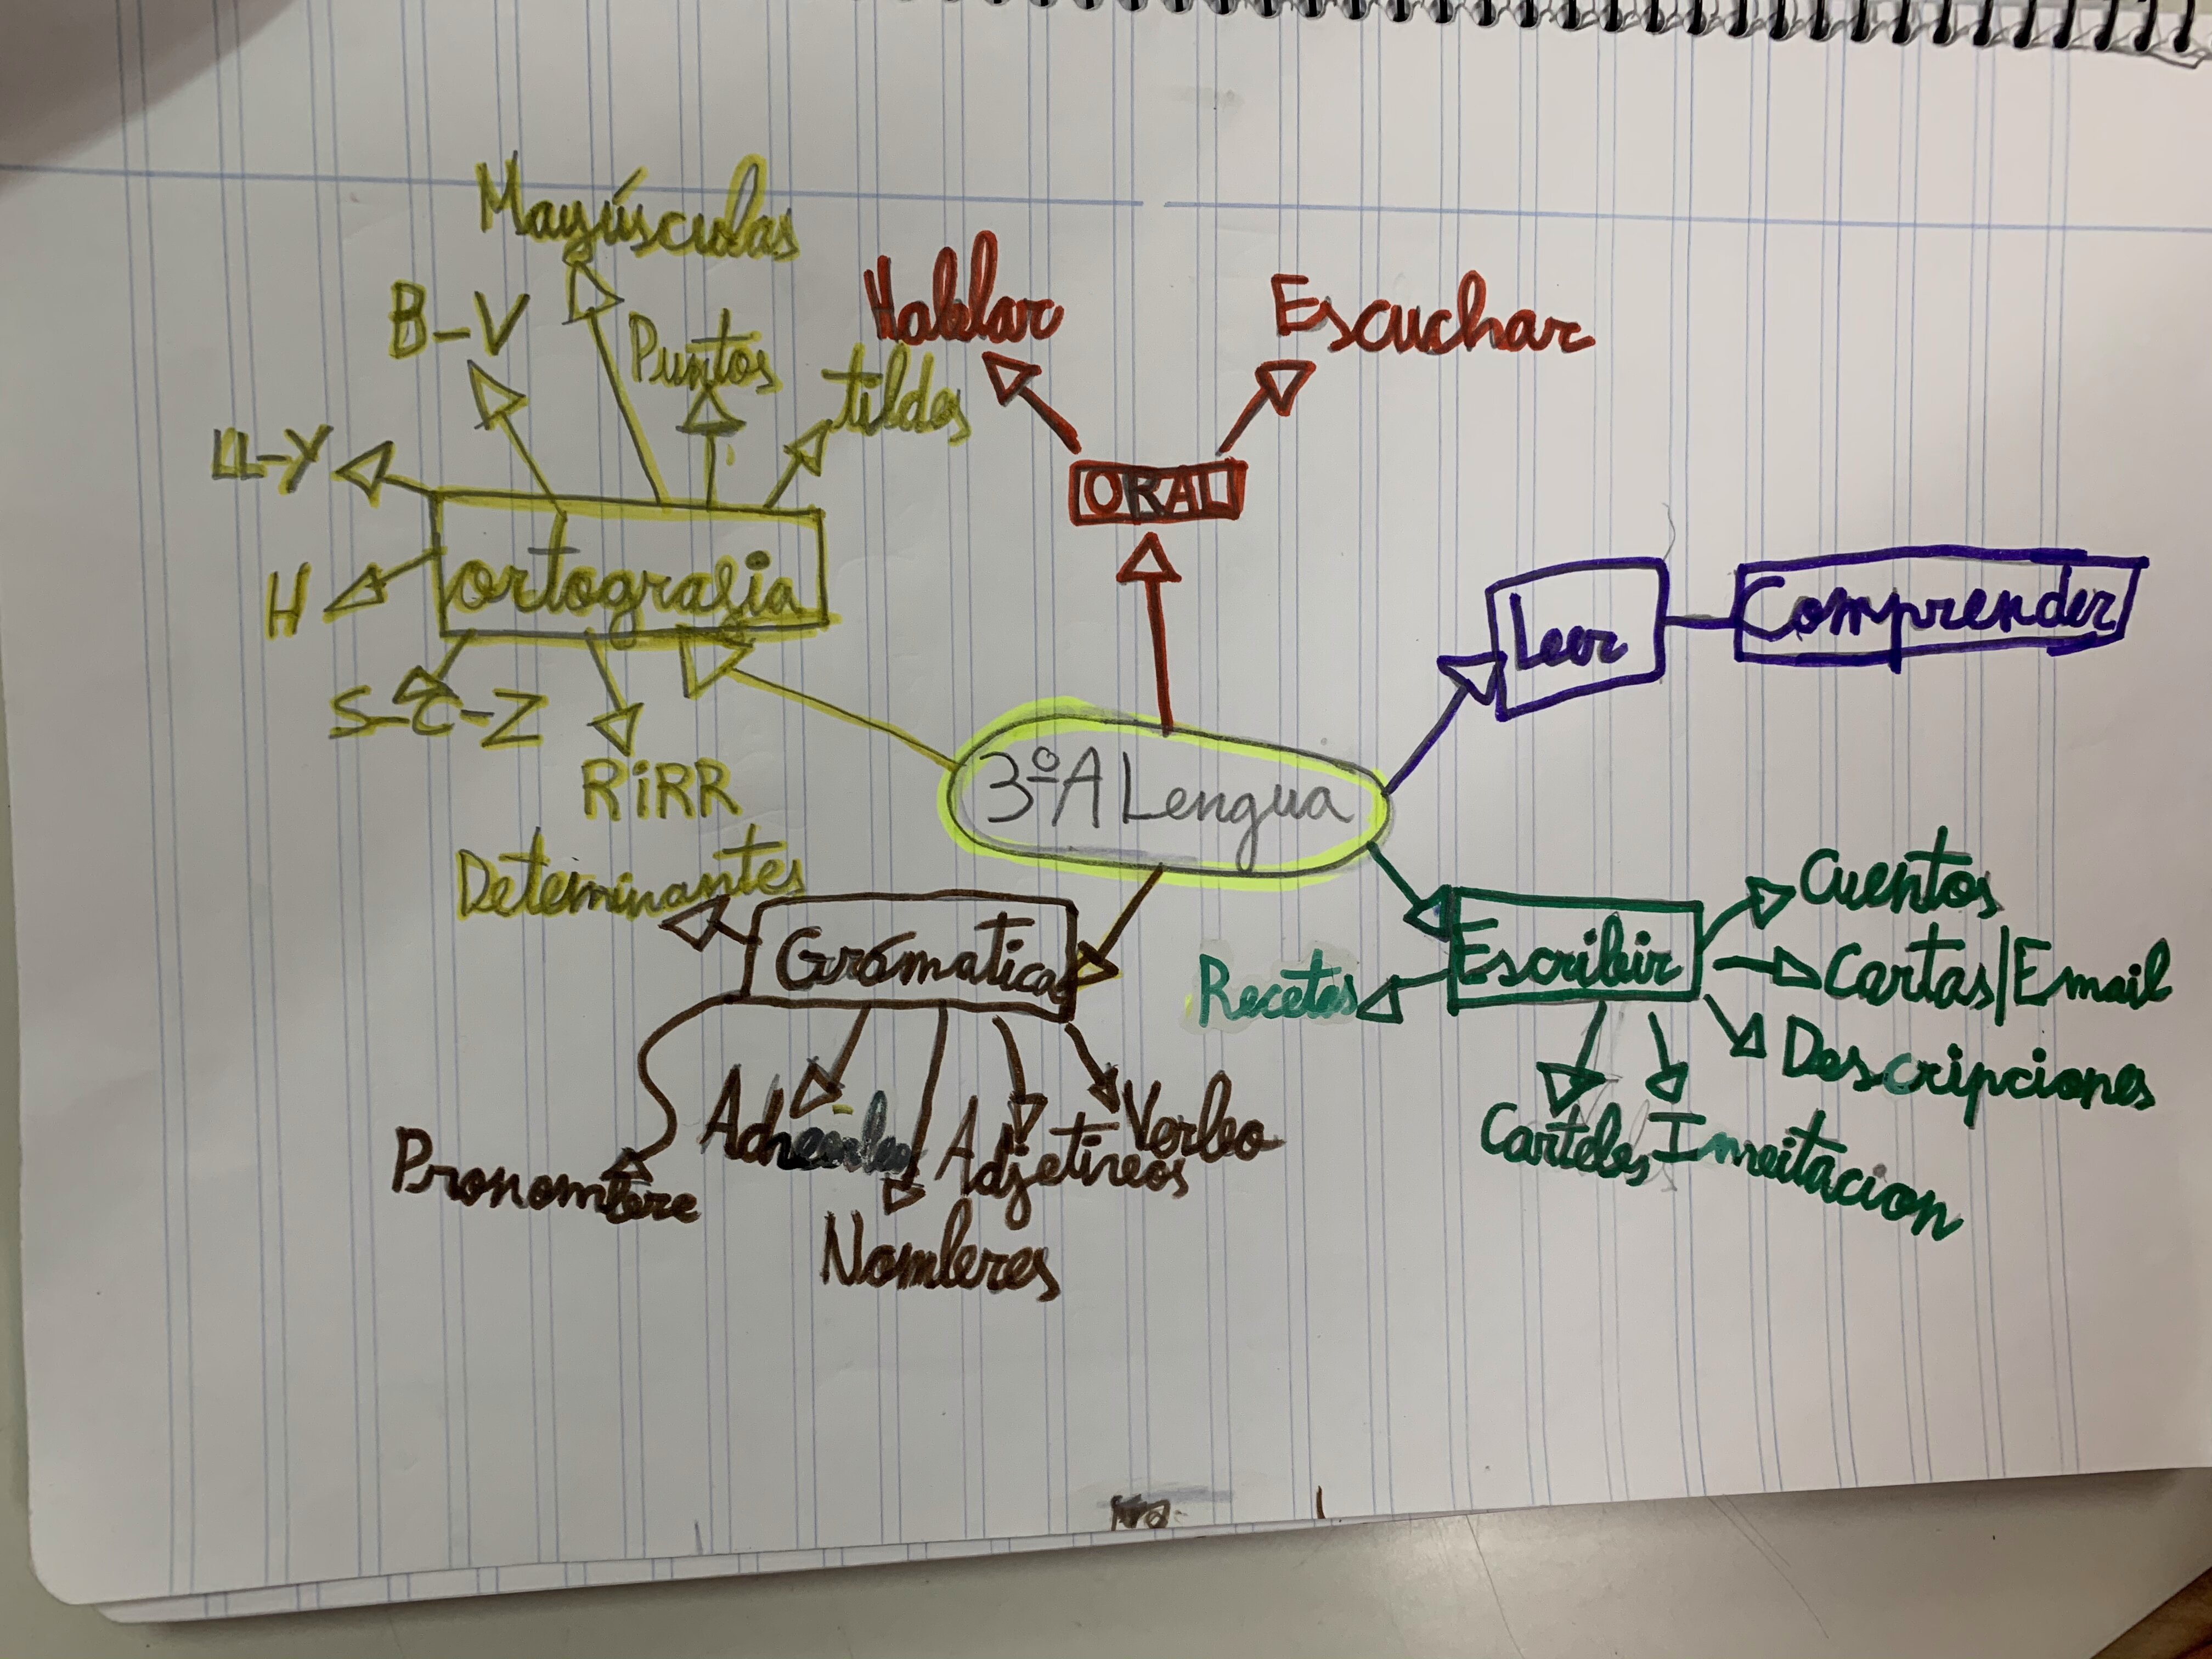 Mayúsculas
B-V
Puntos
tildes
LL-Y
H
ortografia
S-C-Z
RiRR
Hablar
Escuchar
ORAL
Leer
Comprender
3ºA Lengua
Determinantes
Grámatica
Pronombre
Nombres
Adjetivos
Verbo
Escribir
Recetas
Cuentos
Cartas/Email
Descripciones
Carteles
Invitacion